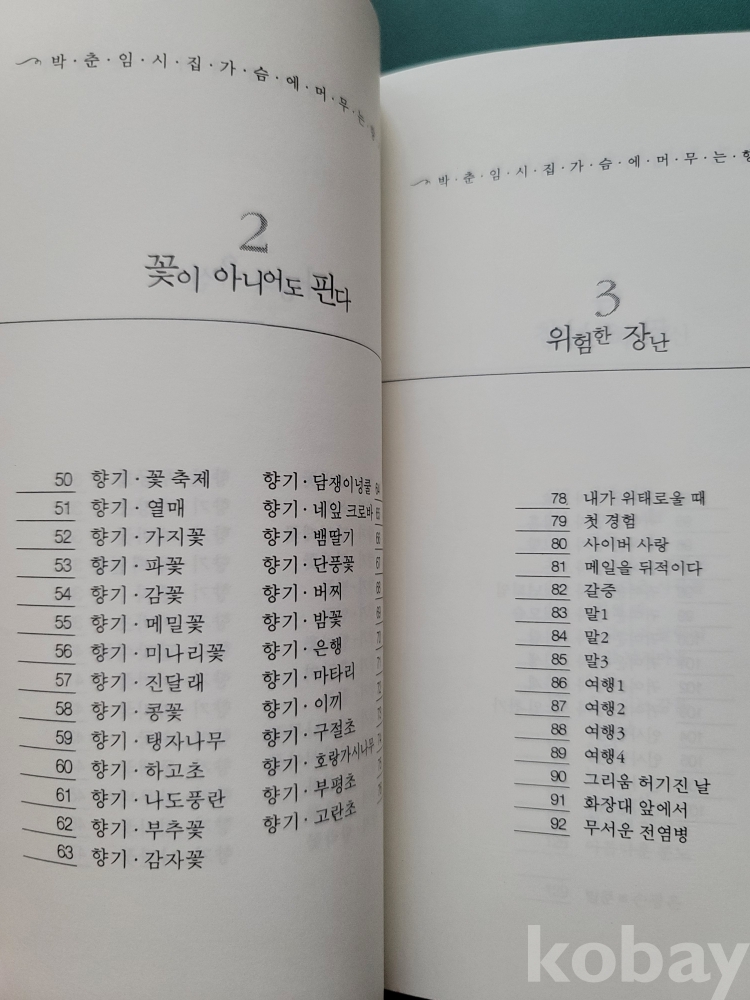 박·춘·임·시·집·가·슴·에·머·무·는
2
꽃이 아니어도 핀다
50 향기·꽃 축제
51 향기·열매
52 향기·가지꽃
53 향기·파꽃
54 향기·감꽃
55 향기·메밀꽃
56 향기·미나리꽃
57 향기·진달래
58 향기·콩꽃
59 향기·탱자나무
60 향기·하고초
61 향기·나도풍란
62 향기·부추꽃
63 향기·감자꽃
향기·담쟁이넝쿨 64
향기·네잎 크로바 65
향기·뱀딸기 66
향기·단풍꽃 67
향기·버찌 68
향기·밤꽃 69
향기·은행 70
향기·마타리
향기·이끼
향기·구절초
향기·호랑가시나무
향기·부평초
향기·고란초
박·춘·임·시·집·가·슴·에·머·무·는·향
3
위험한 장난
78 내가 위태로울 때
79 첫 경험
80 사이버 사랑
81 메일을 뒤적이다
82 갈증
83 말1
84 말2
85 말3
86 여행1
87 여행2
88 여행3
89 여행4
90 그리움 허기진 날
91 화장대 앞에서
92 무서운 전염병
kobay